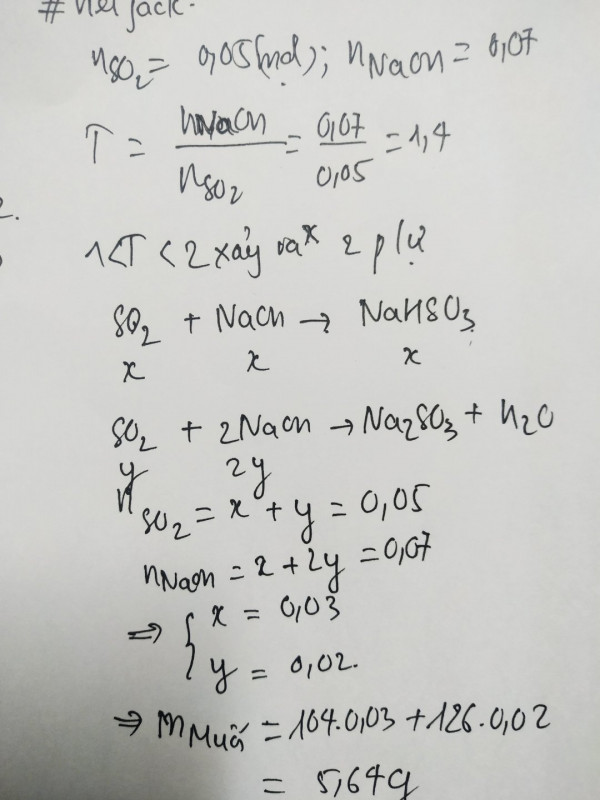 # Neil Jack.
nSO2 = 0,05(mol); nNaOH = 0,07
T = nNaOH / nSO2 = 0,07 / 0,05 = 1,4
2.
1<T<2 xảy ra 2 p/ứ
SO2 + NaOH → NaHSO3
x x x
SO2 + 2NaOH → Na2SO3 + H2O
y 2y
nSO2 = x + y = 0,05
nNaOH = x + 2y = 0,07
⇒ { x = 0,03
y = 0,02.
⇒ mMuối = 104.0,03 + 126.0,02
= 5,64g